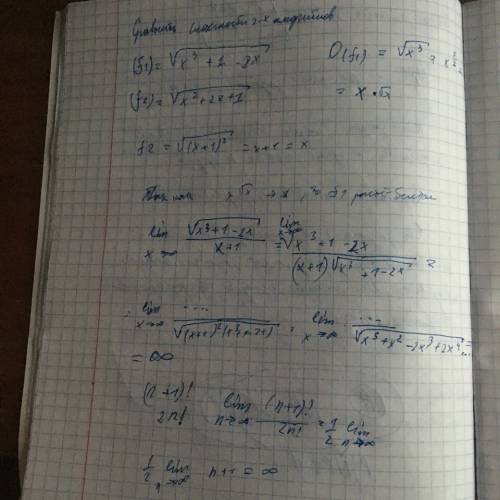 Сравнить сложности 2-х алгоритмов
(f1) = √(x³ + 1 - 2x)   O(f1) = √x³ = x^(3/2)
(f2) = √(x² + 2x + 1)   = x · √x
f2 = √((x+1)²) = x+1 = x
Так как x√x > x, то f1 растёт
lim x→∞ √(x³+1-2x) / (x+1) = lim x→∞ x³ + 1 - 2x / (x+1)√(x³+1-2x) =
= lim x→∞ ... = lim x→∞ ...
= ∞
(n+1)! / 2n!   lim n→∞ (n+1)! / 2n! = 1/2 lim n→∞
1/2 lim n→∞ n+1 = ∞